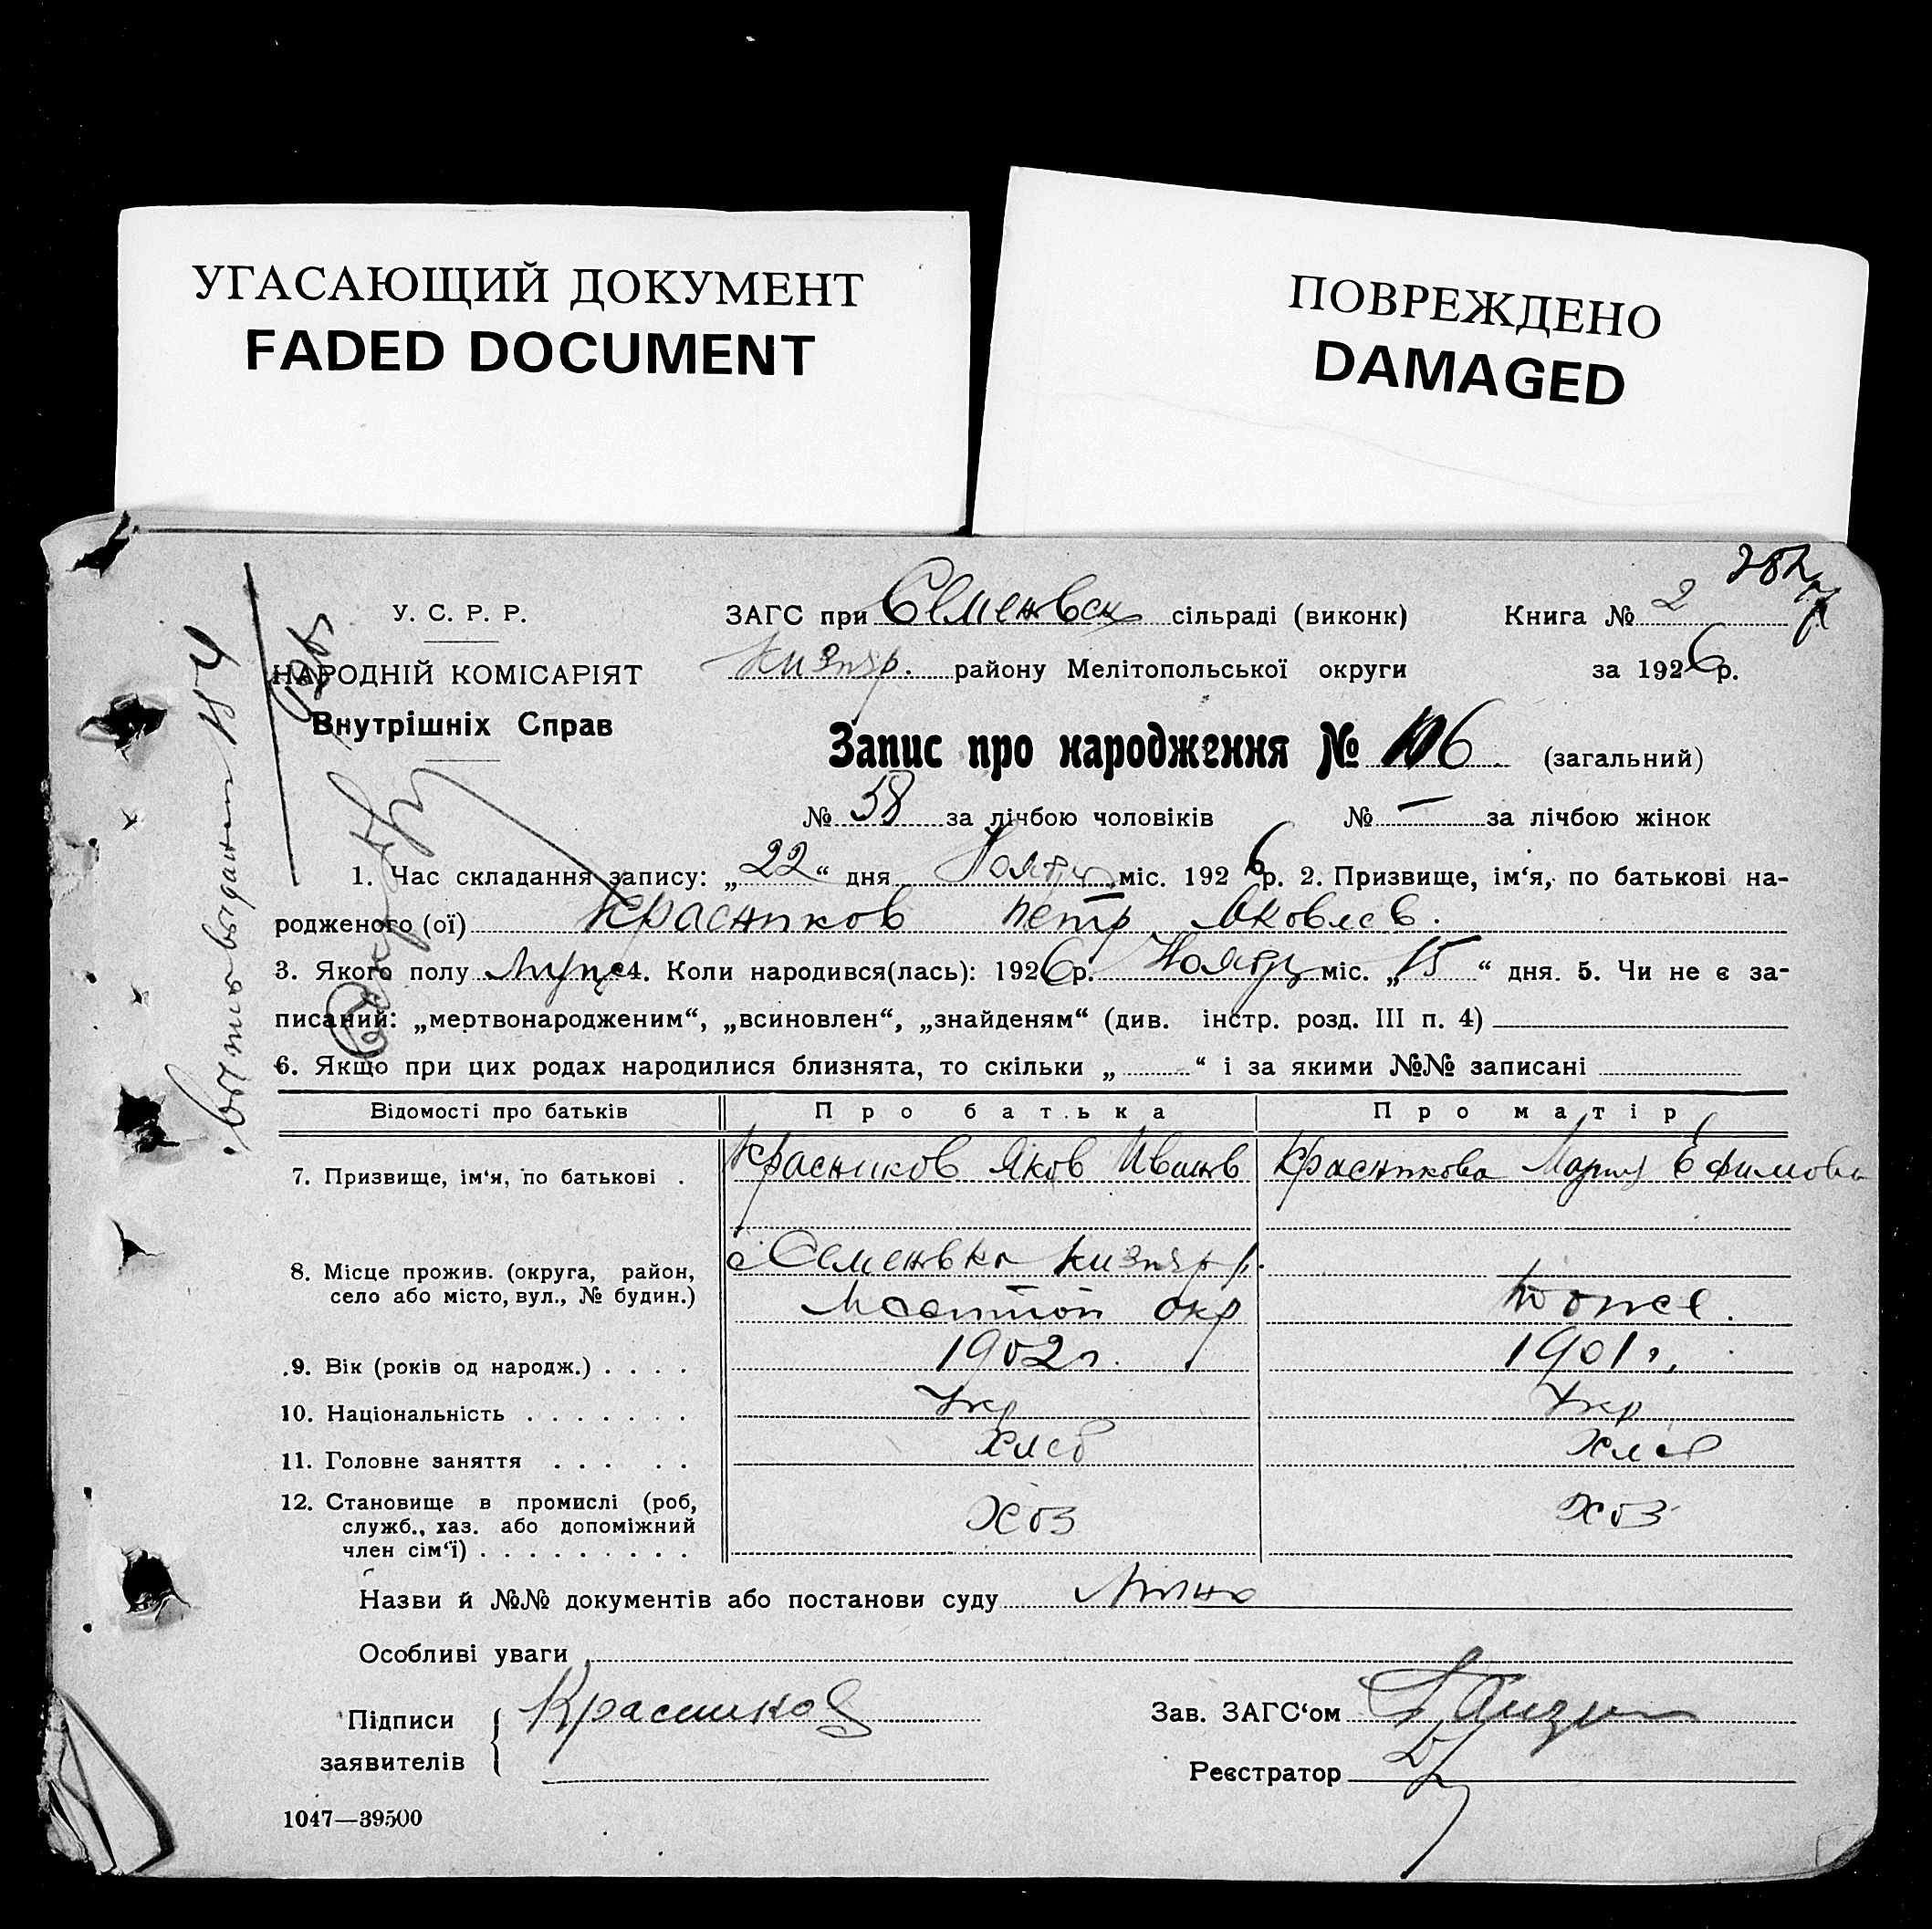 УГАСАЮЩИЙ ДОКУМЕНТ
FADED DOCUMENT
ПОВРЕЖДЕНО
DAMAGED
У. С. Р. Р.
НАРОДНІЙ КОМІСАРІЯТ
Внутрішніх Справ
ЗАГС при Семеновск сільраді (виконк) Книга № 2
Кизияр. району Мелітопольської округи за 1926 р.
Запис про народження № 106 (загальний)
№ 58 за лічбою чоловіків № — за лічбою жінок
1. Час складання запису: „22“ дня Ноября міс. 1926 р. 2. Призвище, ім‘я, по батькові на-
родженого (ої) Красников Петр Яковлев.
3. Якого полу Мужс 4. Коли народився(лась): 1926 р. Ноября міс. „15“ дня. 5. Чи не є за-
писаний: „мертвонародженим“, „всиновлен“, „знайденям“ (див. інстр. розд. III п. 4)
6. Якщо при цих родах народилися близнята, то скільки „ “ і за якими №№ записані
Відомості про батьків Про батька Про матір
7. Призвище, ім‘я, по батькові . Красников Яков Иванов Красникова Мария Ефимова
8. Місце прожив. (округа, район, с Семеновка Кизияр р.
село або місто, вул., № будин.) Мелитоп окр тоже.
9. Вік (років од народж.) . . . . 1902 г. 1901 г.
10. Національність . . . . . . . Укр Укр
11. Головне заняття . . . . . Хлеб Хлеб
12. Становище в промислі (роб, Хоз Хоз
служб., хаз. або допоміжний
член сім‘ї) . . . . . . . . .
Назви й №№ документів або постанови суду
Особливі уваги
Підписи Красников Зав. ЗАГС‘ом
заявителів Реєстратор
1047—39500